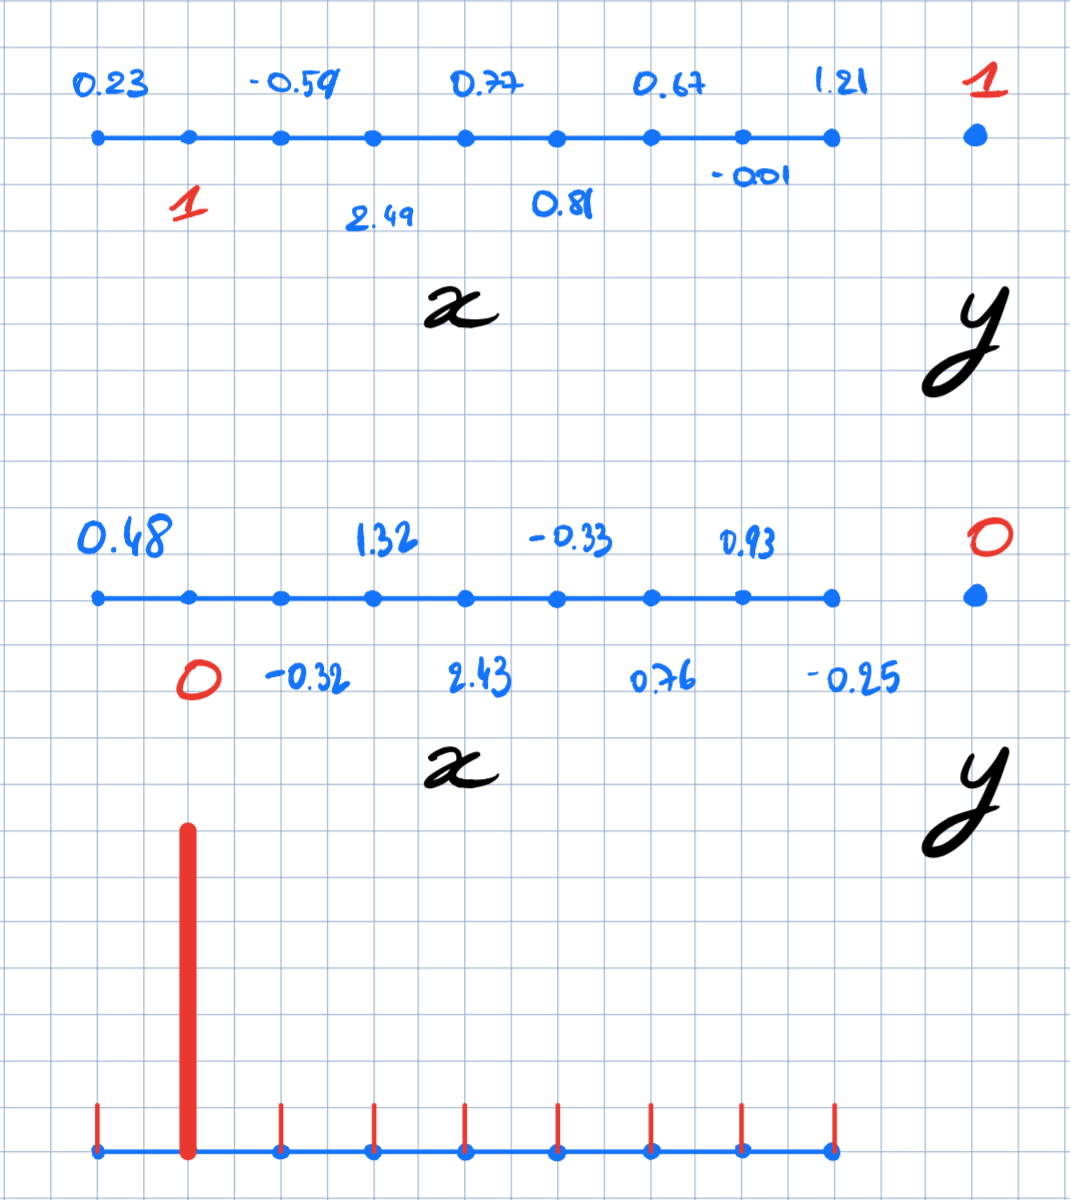 0.23 -0.59 0.77 0.67 1.21 1
1 2.49 0.81 -0.01
x y
0.48 1.32 -0.33 0.93 0
0 -0.32 2.43 0.76 -0.25
x y